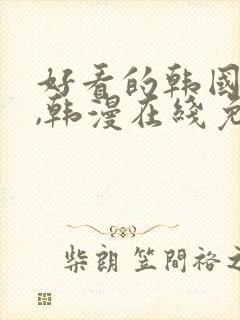 好看的韩国
,韩漫在线免
柴朗 笠間裕之